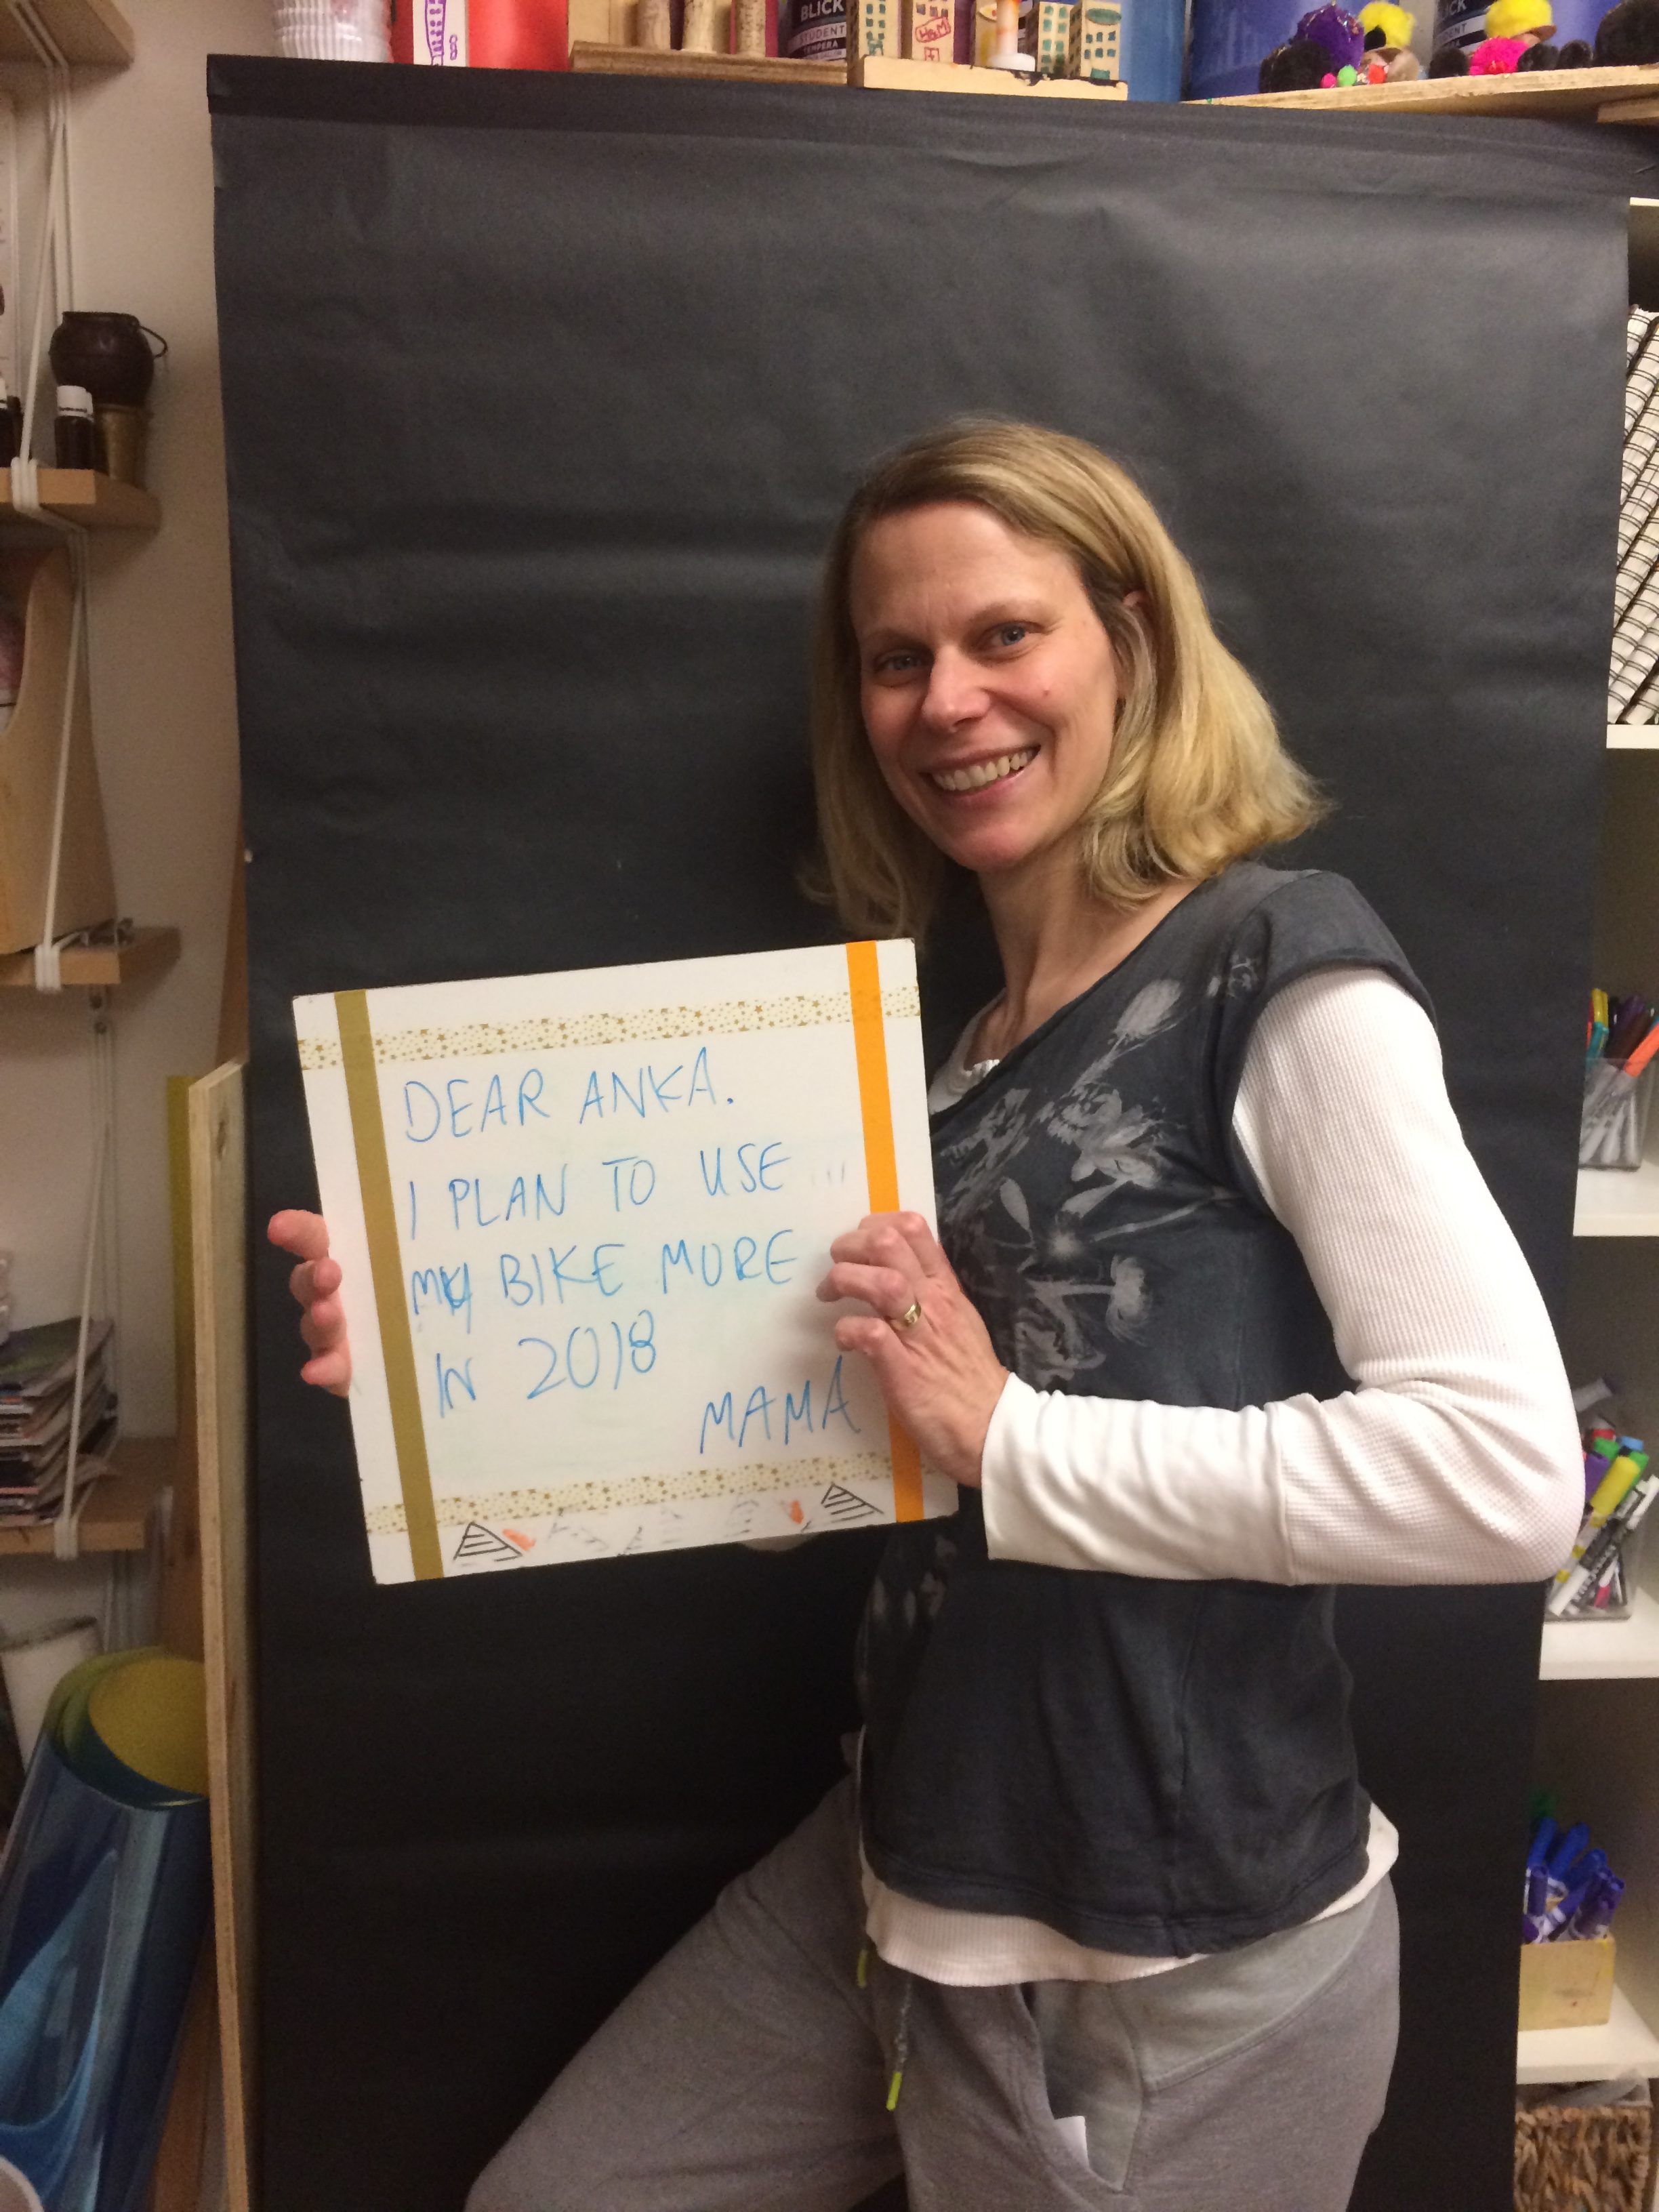 BLICK
STUDENT
TEMPERA
H&M
BLICK
DEAR ANKA.
I PLAN TO USE
MY BIKE MORE
IN 2018
MAMA